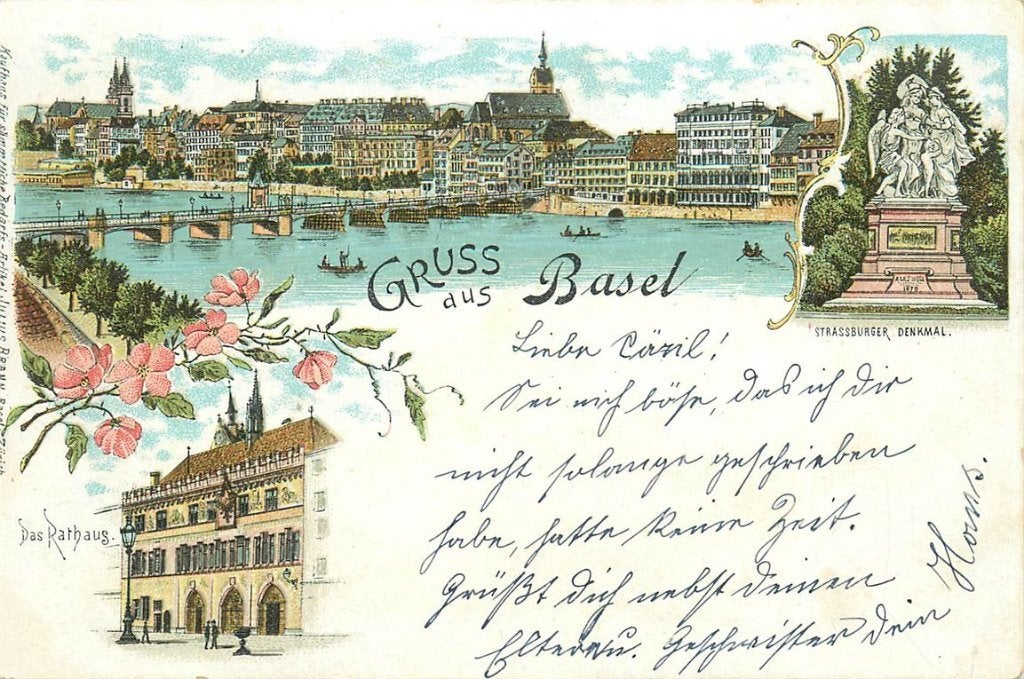 GRUSS
aus Basel
STRASSBURGER DENKMAL.
Das Rathaus.
Liebe Cäzil!
Sei nich böse, das ich dir
nicht solange geschrieben
habe, hatte keine Zeit.
Grüßt dich nebst deinen
Eltern u. Geschwister dein
Hans.